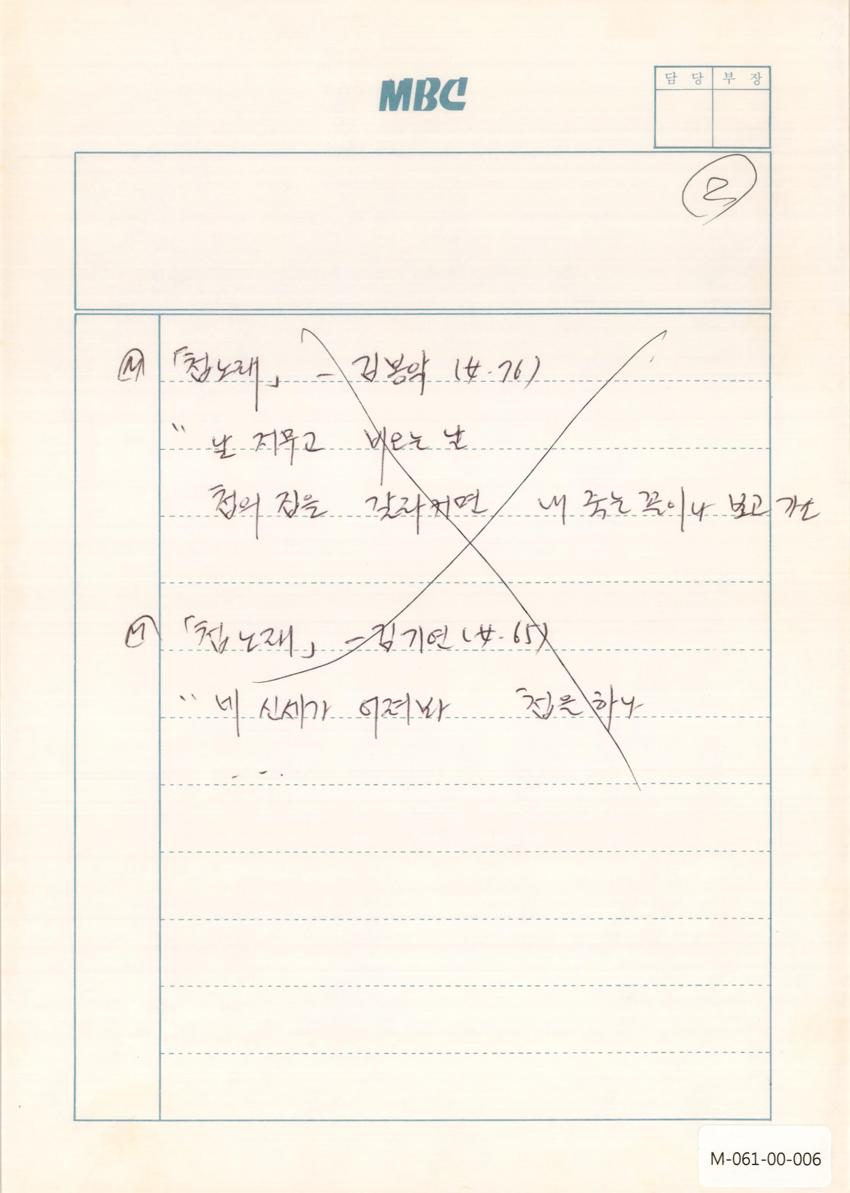 MBC
담 당 부 장
2
Ⓜ 「첩노래」 - 김봉악 (女. 76)
" 날 저무고 비오는 날
첩의 집을 갈라치면 내 죽는 꼴이나 보고 가소
Ⓜ 「첩노래」 - 김기연 (女. 65)
" 네 신세가 어져봐 첩을 하나
.....
M-061-00-006